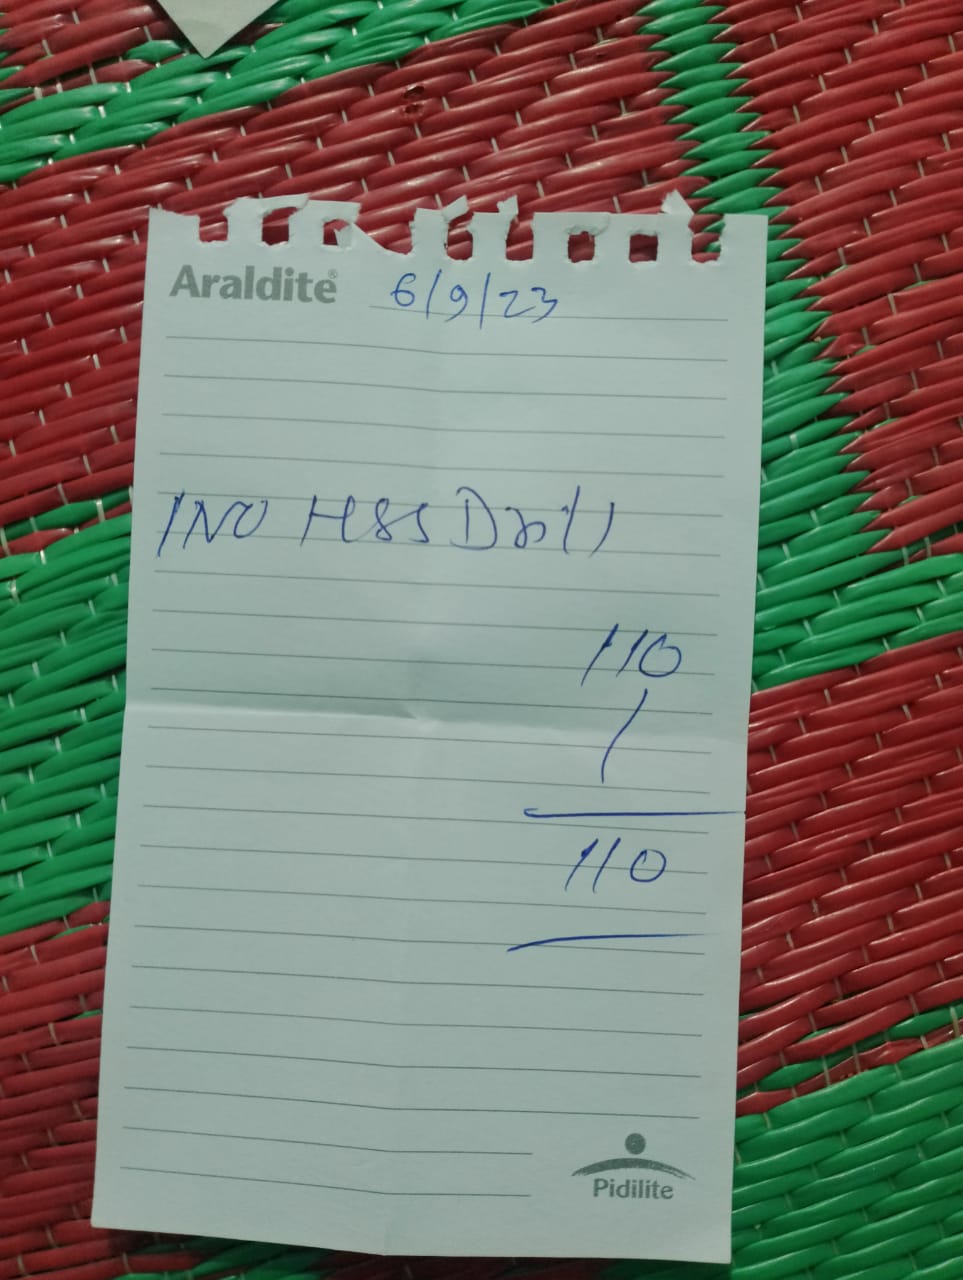 Araldite® 6/9/23
1NO HSS Drill
110
110
Pidilite